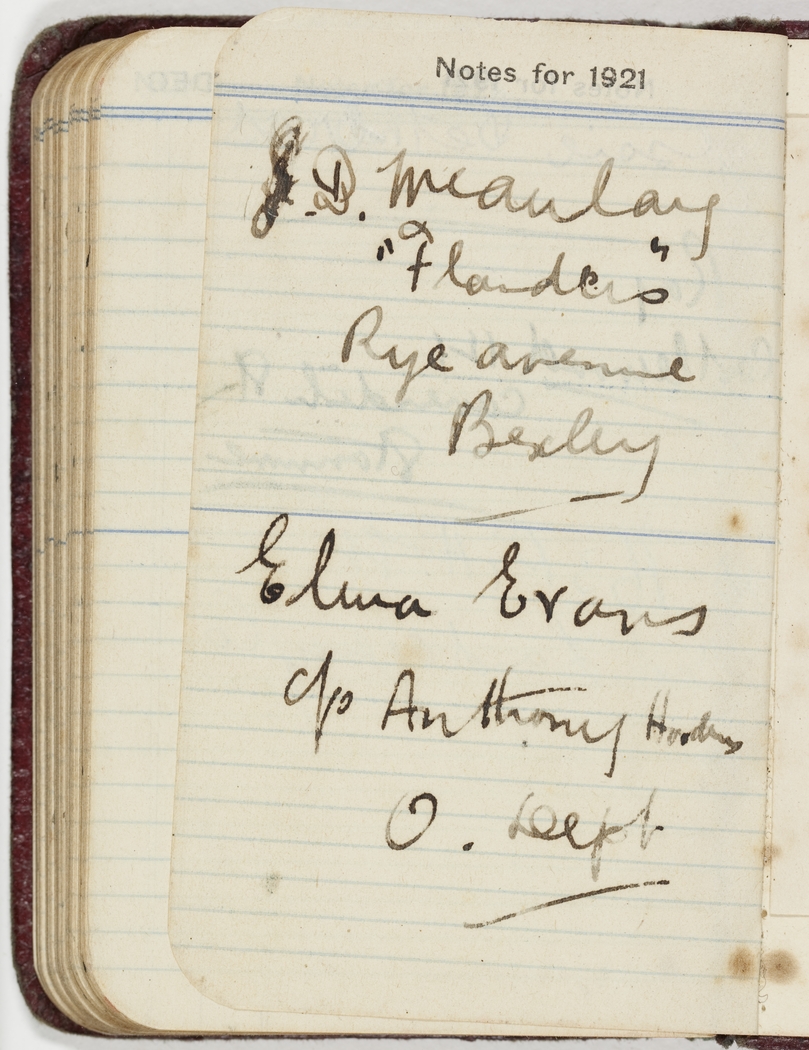 Notes for 1921
J. D. McAulay
"Flanders"
Rye avenue
Bexley
Elma Evans
c/o Anthony Horderns
O. Dept